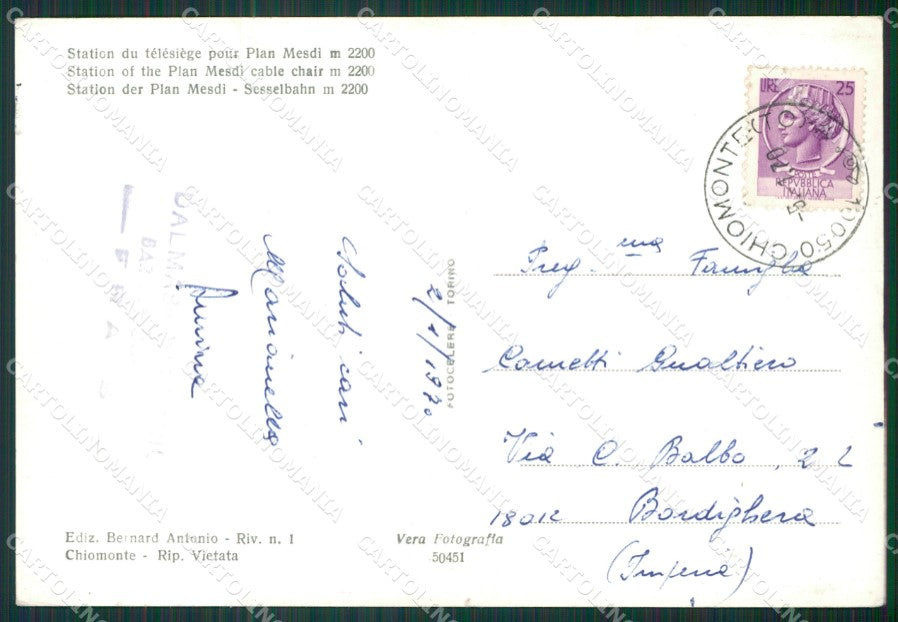 Station du télésiège pour Plan Mesdi m 2200
Station of the Plan Mesdi cable chair m 2200
Station der Plan Mesdi - Sesselbahn m 2200
LIRE 25
POSTE
REPVBBLICA
ITALIANA
10050 CHIOMONTE (TO)
2/1/1970
Saluti cari
Marinella
FOTOCELERE TORINO
Preg.ma Famiglia
Cometti Gualtiero
Via C. Balbo, 22
18012 Bordighera
(Imperia)
Ediz. Bernard Antonio - Riv. n. 1
Chiomonte - Rip. Vietata
Vera Fotografia
50451
CARTOLINOMANIA